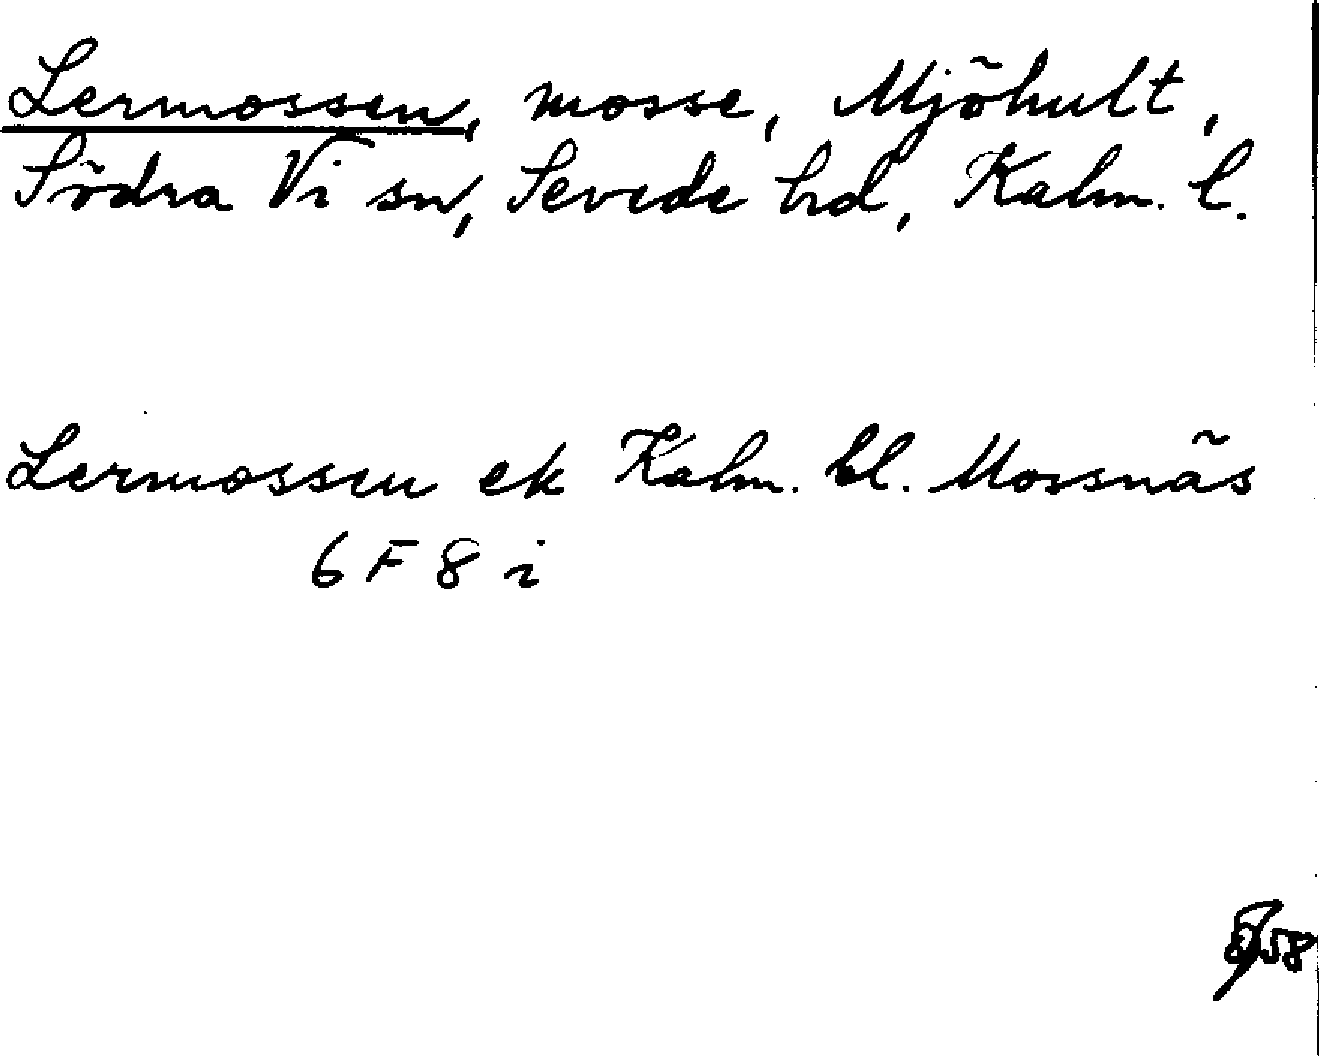 Lermossen, mosse, Mjöhult,
Södra Vi sn, Sevede hd, Kalm. l.
Lermossen ek Kalm. bl. Mossnäs
6 F 8 i
58